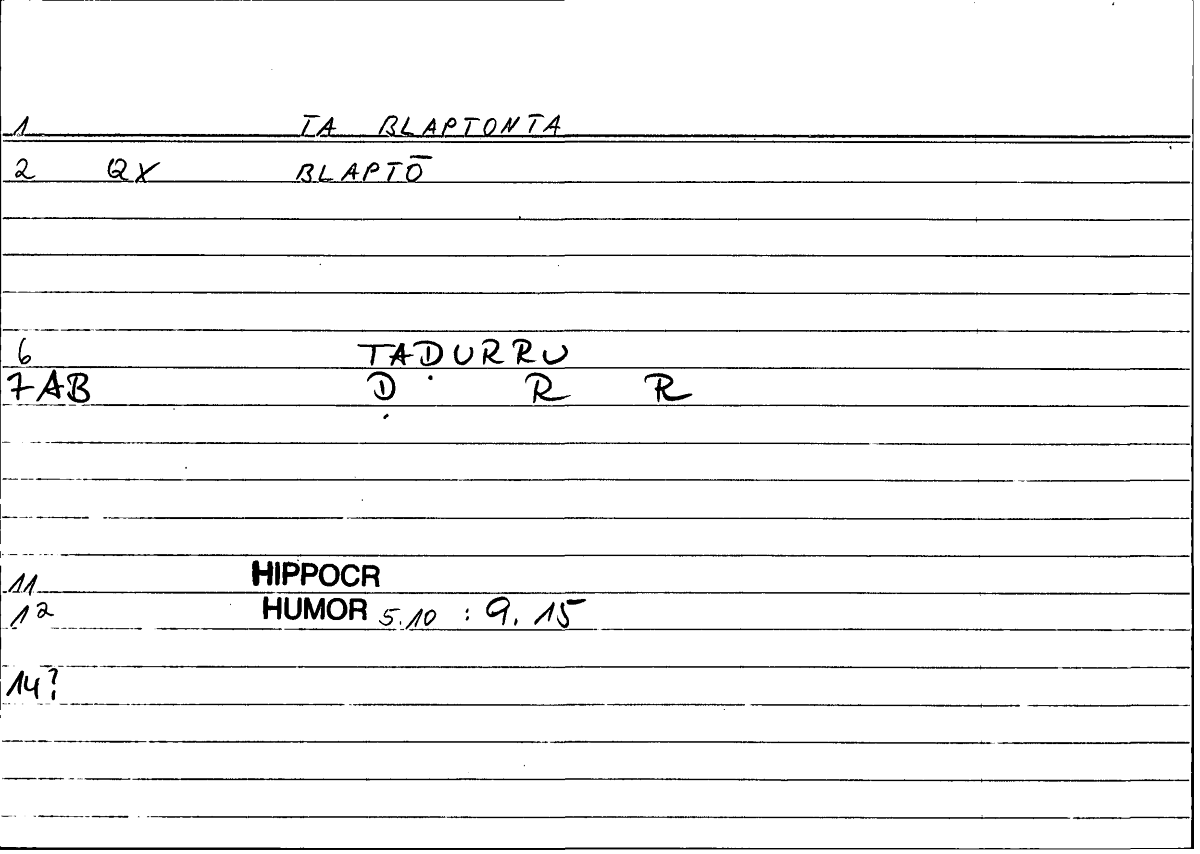 1 TA BLAPTONTA
2 QX BLAPTŌ
6 TAḌURRU
7AB Ḍ R R
11 HIPPOCR
12 HUMOR 5.10 : 9.15
14?